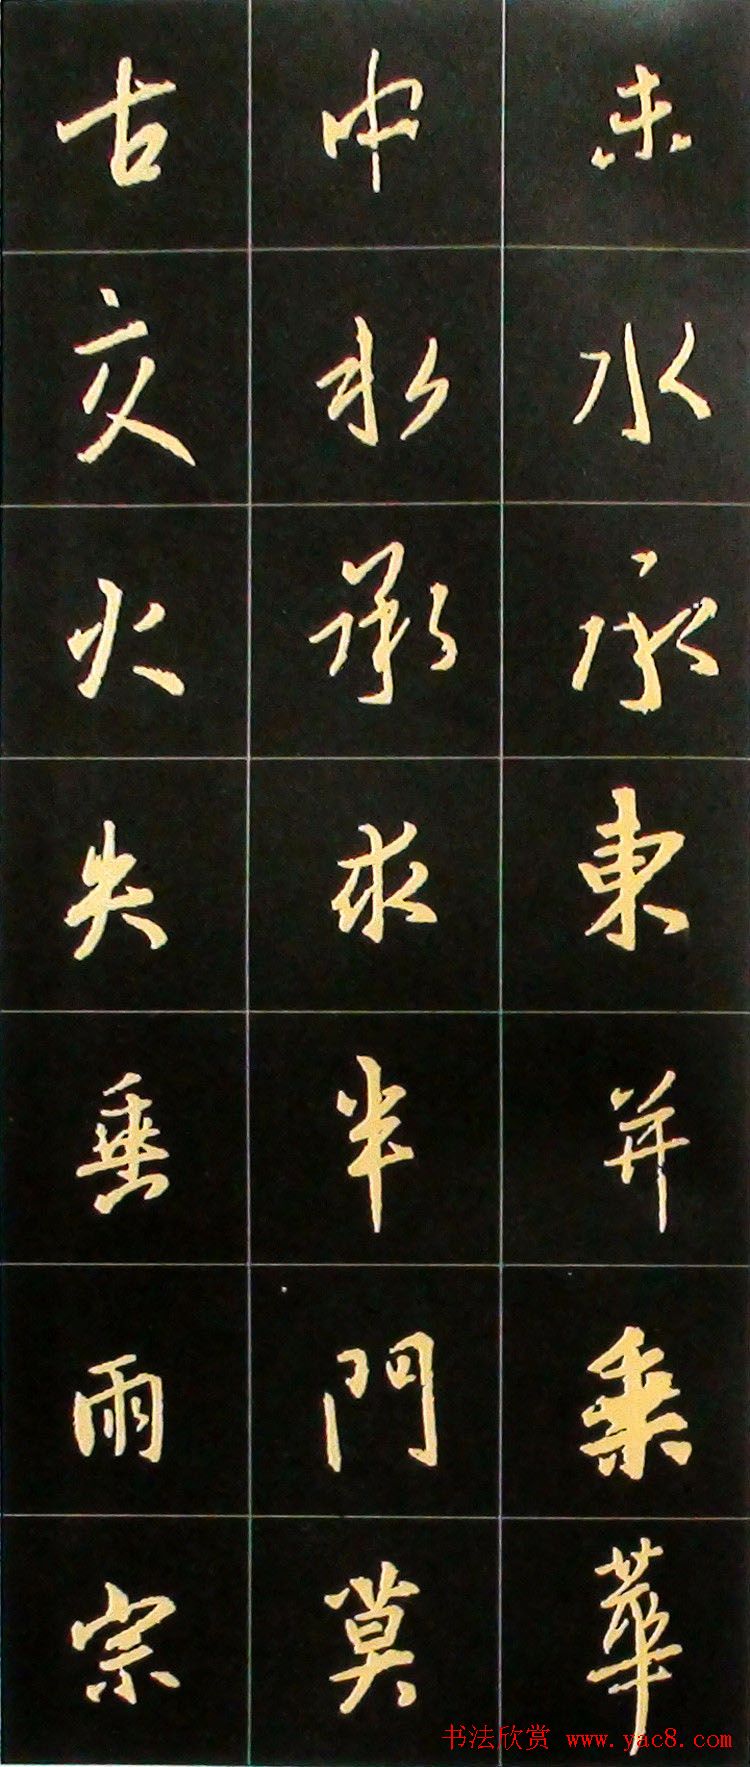 未水永東并乘華
中承求半門莫
古交火失垂雨宗
书法欣赏 www.yac8.com